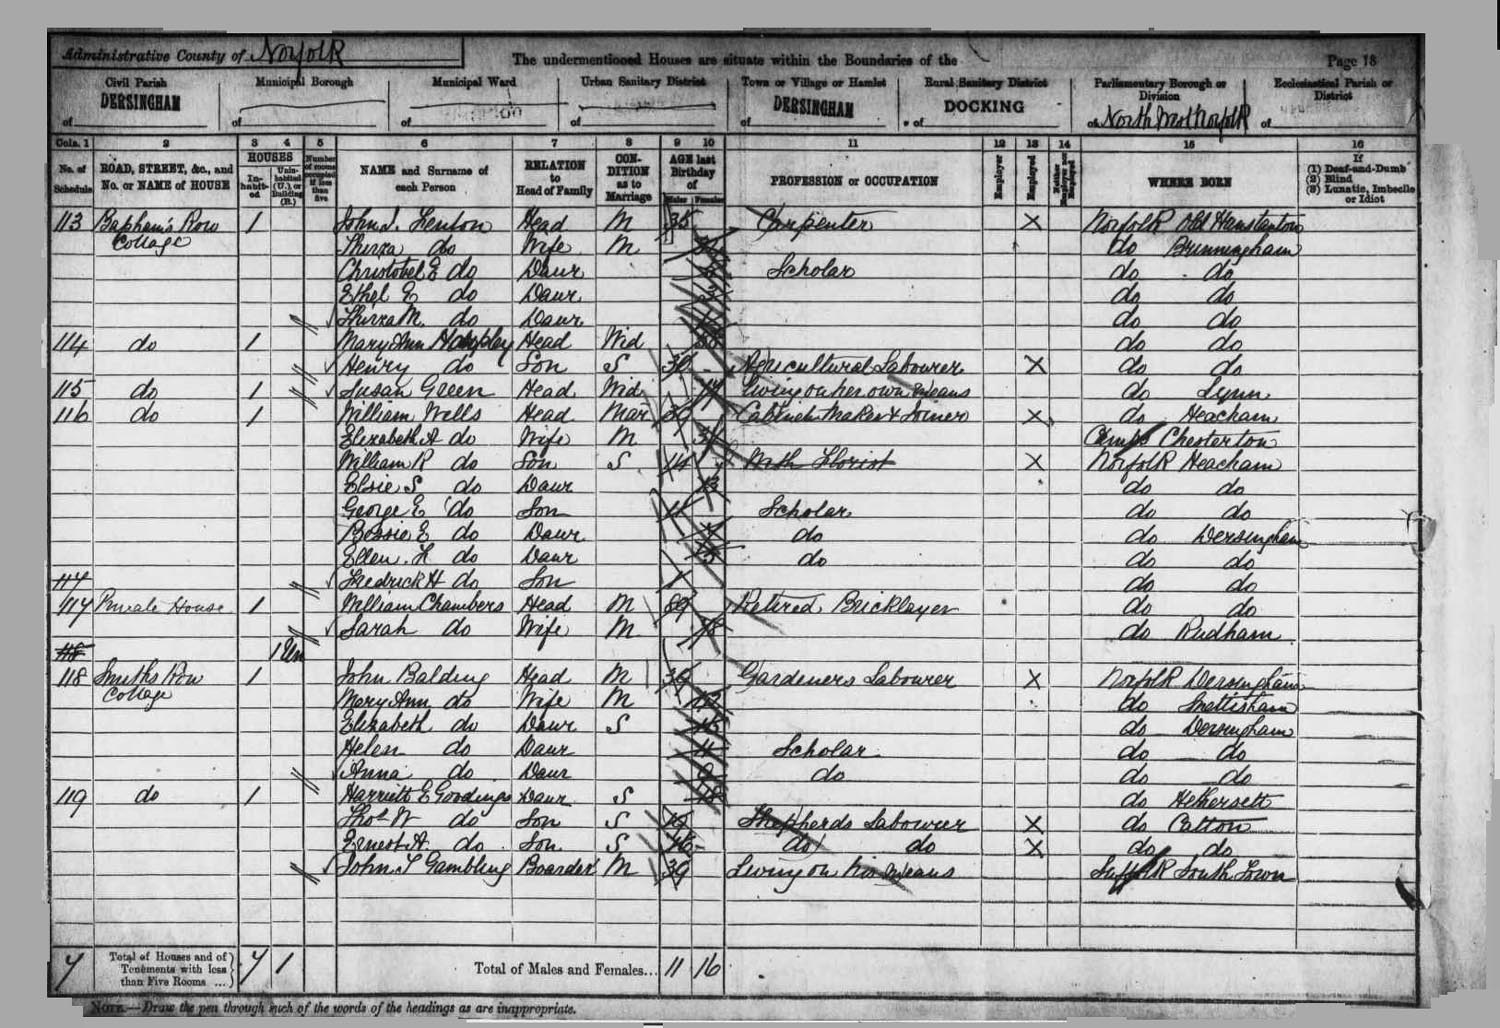 Administrative County of Norfolk The undermentioned Houses are situate within the Boundaries of the Page 18
Civil Parish of DERSINGHAM
Municipal Borough of
Municipal Ward of
Urban Sanitary District of
Town or Village or Hamlet of DERSINGHAM
Rural Sanitary District of DOCKING
Parliamentary Borough or Division of North West Norfolk
Ecclesiastical Parish or District of
Cols. 1 2 3 4 5 6 7 8 9 10 11 12 13 14 15 16
No. of Schedule
ROAD, STREET, &c., and No. or NAME of HOUSE
HOUSES
In-habit-ed
Unin-habited (U.) or Building (B.)
Number of rooms occupied if less than five
NAME and Surname of each Person
RELATION to Head of Family
CON-DITION as to Marriage
AGE last Birthday of
Males Females
PROFESSION or OCCUPATION
Employer
Employed
Neither Employer nor Employed
WHERE BORN
If
(1) Deaf-and-Dumb
(2) Blind
(3) Lunatic, Imbecile or Idiot
113 Row 1 John S. Fenton Head M 35 Carpenter X Norfolk Old Hunstanton
Cottage Thirza do Wife M do Brinningham
Christobel E do Daur Scholar do do
Ethel E do Daur 3 do do
Thirza M. do Daur do do
114 do 1 Mary Ann Head Wid do do
Henry do Son S 30 Agricultural Labourer X do do
115 do 1 Susan Green Head Wid Living on her own Means do Lynn
116 do 1 William Wells Head Mar 39 Cabinet Maker & Joiner X do Heacham
Elizabeth A do Wife M Cambs Chesterton
William R do Son S 14 Florist X Norfolk Heacham
Elsie S do Daur 13 do do
George E do Son 11 Scholar do do
Bessie E do Daur do do Dersingham
Ellen. H do Daur 5 do do do
117 Fredrick H do Son 1 do do
117 Private House 1 William Chambers Head M 89 Retired Bricklayer do do
Sarah do Wife M do Rudham
118 1 Un
118 Smiths Row 1 John Balding Head M Gardeners Labourer X Norfolk Dersingham
Cottage Mary Ann do Wife M do Snettisham
Elizabeth do Daur S 15 do Dersingham
Helen do Daur 11 Scholar do do
Anna do Daur 9 do do do
119 do 1 Harriett E Goodings Daur S 18 do Hethersett
Thos W do Son S Shepherds Labourer X do Catton
Ernest A. do Son S 16 do do X do do
John T Gambling Boarder M 39 Living on his Means Suffolk South Town
7 Total of Houses and of Tenements with less than Five Rooms ... 7 1 Total of Males and Females... 11 16
NOTE.—Draw the pen through such of the words of the headings as are inappropriate.